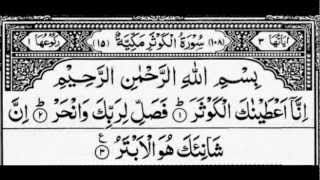 اٰيَاتُهَا ٣ (١٠٨) سُوْرَةُ الْكَوْثَرِ مَكِّيَّةٌ (١٥) رُكُوْعُهَا ١
بِسْمِ اللّٰهِ الرَّحْمٰنِ الرَّحِيْمِ
اِنَّاۤ اَعْطَيْنٰكَ الْكَوْثَرَ ۝١ فَصَلِّ لِرَبِّكَ وَانْحَرْ ۝٢ اِنَّ
شَانِئَكَ هُوَ الْاَبْتَرُ ۝٣